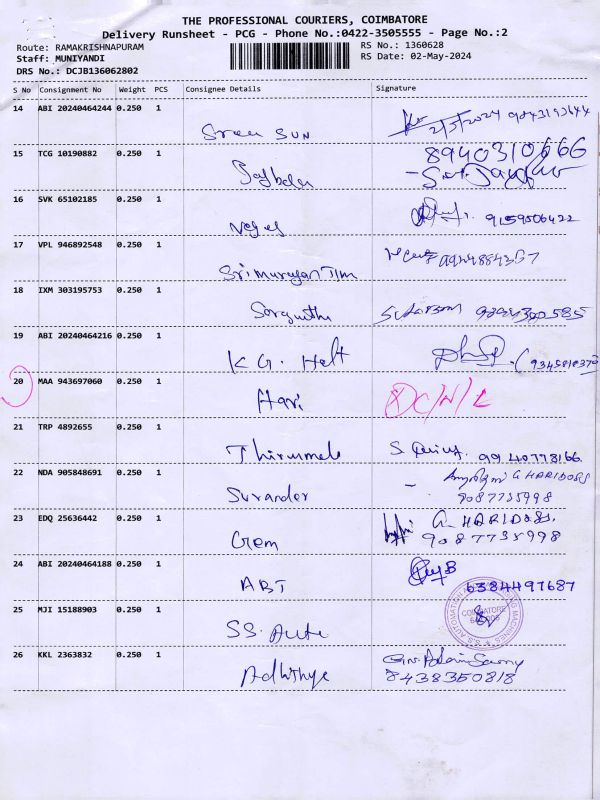 THE PROFESSIONAL COURIERS, COIMBATORE
Delivery Runsheet - PCG - Phone No.:0422-3505555 - Page No.:2
Route: RAMAKRISHNAPURAM RS No.: 1360628
Staff: MUNIYANDI RS Date: 02-May-2024
DRS No.: DCJB136062802
S No Consignment No Weight PCS Consignee Details Signature
14 ABI 20240464244 0.250 1 Sree SUN 2/5/2024 9843193644
15 TCG 10190882 0.250 1 8940310666
16 SVK 65102185 0.250 1 9159506422
17 VPL 946892548 0.250 1 Sri murugan Tim
18 IXM 303195753 0.250 1
19 ABI 20240464216 0.250 1 K G. Helt
20 MAA 943697060 0.250 1 Hari DC/N/L
21 TRP 4892655 0.250 1 Thirummele 9940778166
22 NDA 905848691 0.250 1 Surander G HARIDOSS
9087735998
23 EDQ 25636442 0.250 1 Gem G. HARIDOSS.
9087735998
24 ABI 20240464188 0.250 1 ABT 6384497687
25 MJI 15188903 0.250 1 SS. Auto COIMBATORE
26 KKL 2363832 0.250 1 Adhithya
8438350818